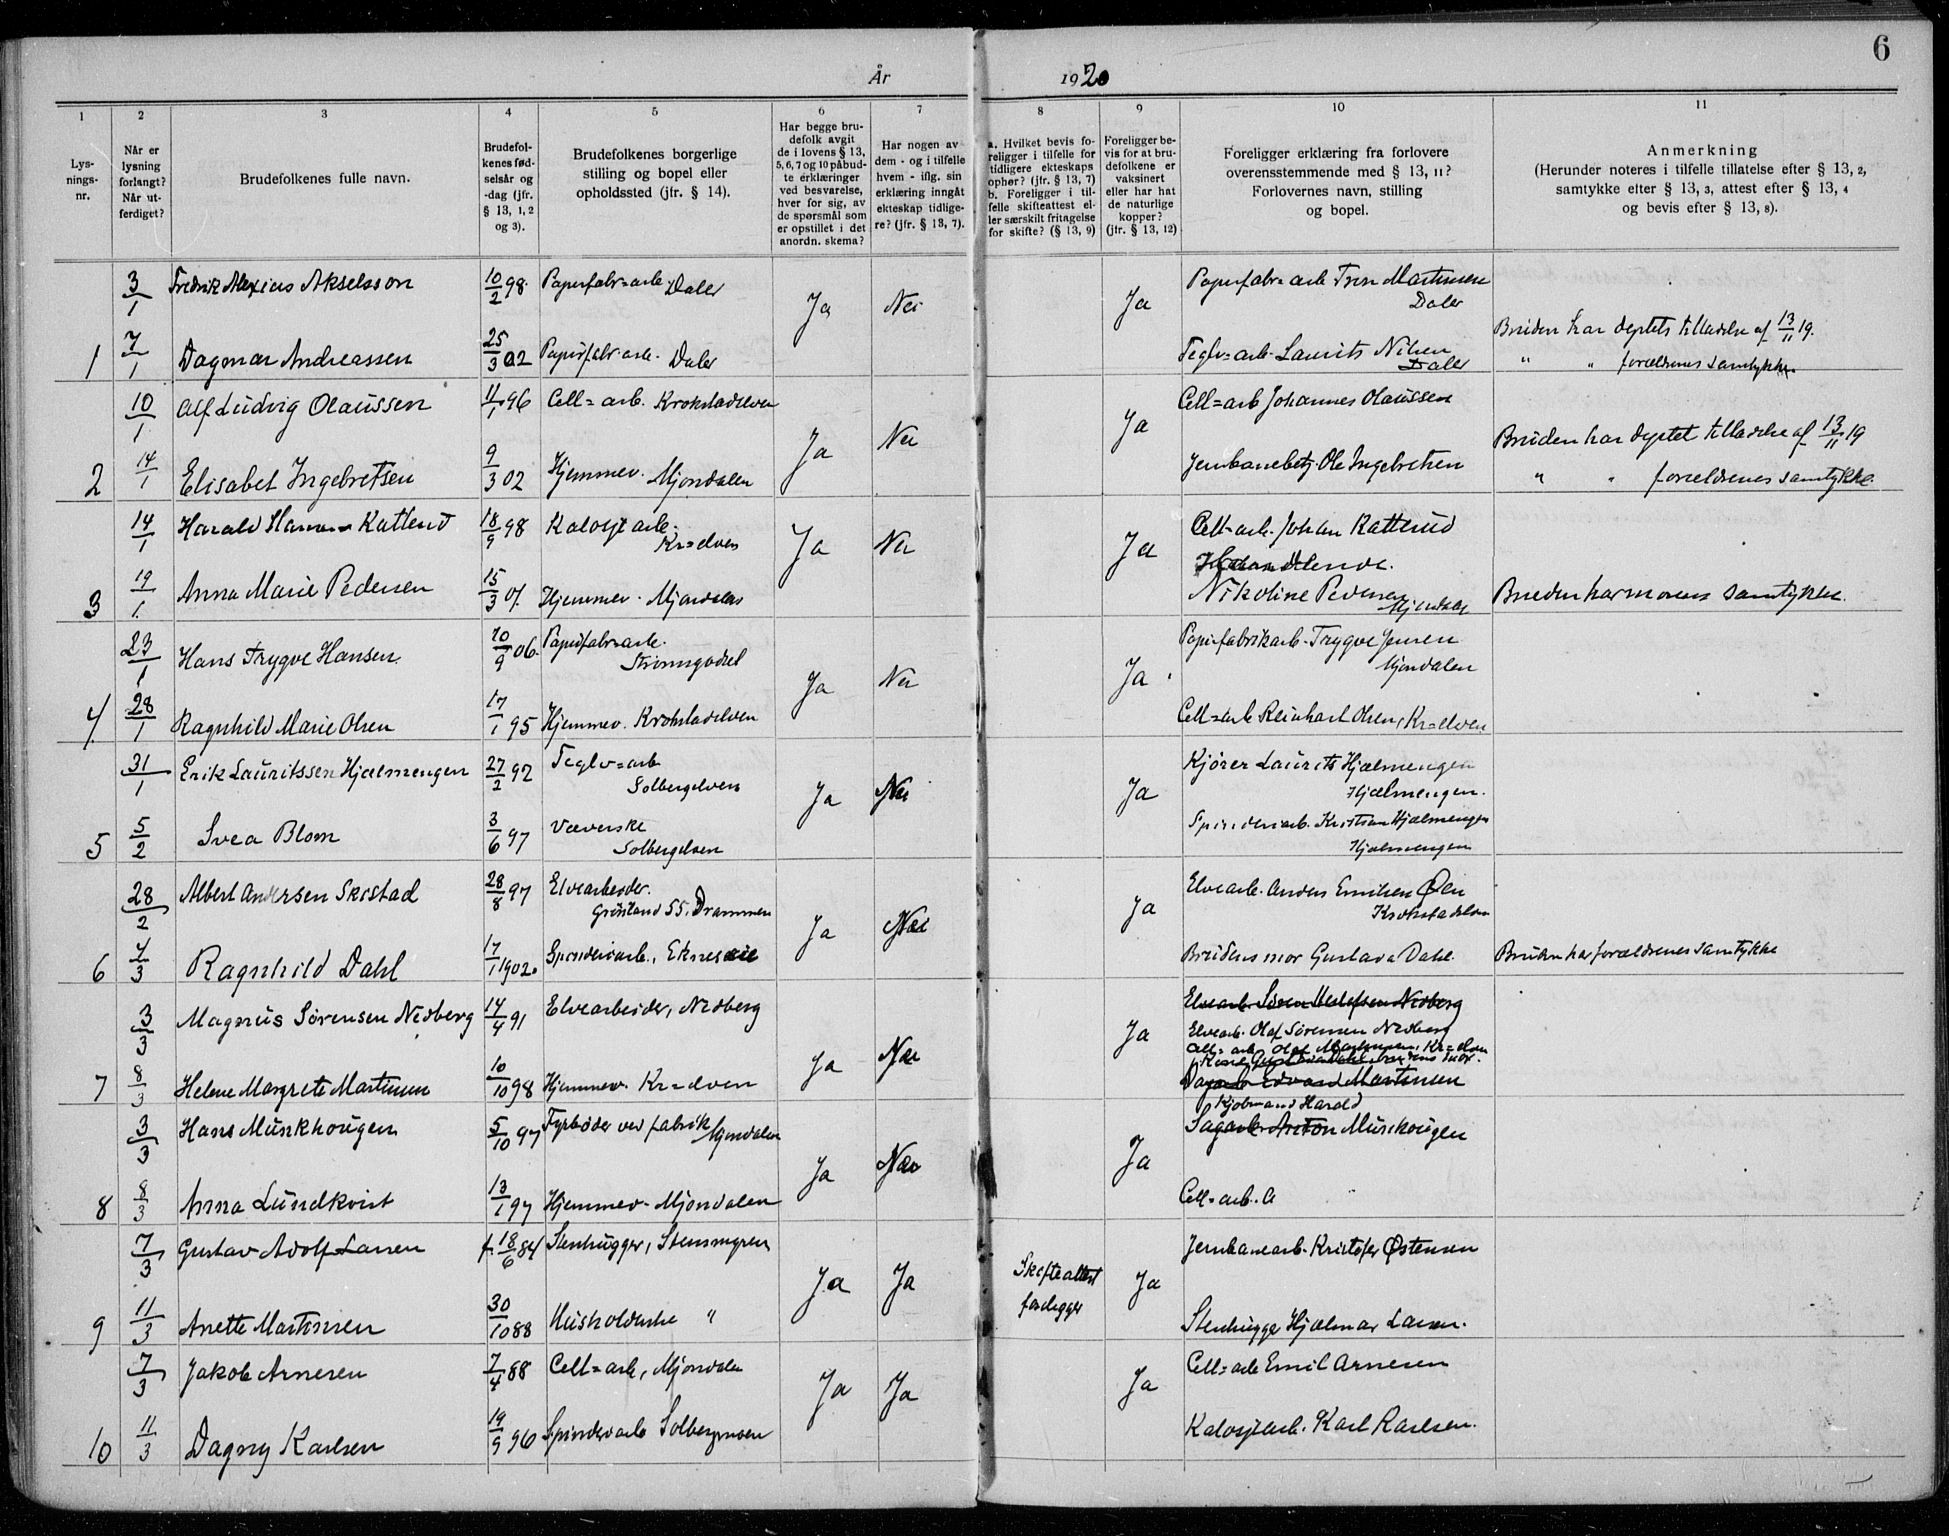 6
År 1920
1
2
3
4
5
6
7
8
9
10
11
Lys-
nings-
nr.
Når er
lysning
forlangt?
Når ut-
ferdiget?
Brudefolkenes fulle navn.
Brudefol-
kenes fød-
selsår og
-dag (jfr.
§ 13, 1, 2
og 3).
Brudefolkenes borgerlige
stilling og bopel eller
opholdssted (jfr. § 14).
Har begge bru-
defolk avgit
de i lovens § 13,
5, 6, 7 og 10 påbud-
te erklæringer
ved besvarelse,
hver for sig, av
de spørsmål som
er opstillet i det
anordn. skema?
Har nogen av
dem - og i tilfelle
hvem - iflg. sin
erklæring inngåt
ekteskap tidlige-
re? (jfr. § 13, 7).
a. Hvilket bevis fo-
religger i tilfelle for
tidligere ekteskaps
ophør? (jfr. § 13, 7)
b. Foreligger i til-
felle skifteattest el-
ler særskilt fritagelse
for skifte? (§ 13, 9)
Foreligger be-
vis for at bru-
defolkene er
vaksinert
eller har hat
de naturlige
kopper?
(jfr. § 13, 12)
Foreligger erklæring fra forlovere
overensstemmende med § 13, 11?
Forlovernes navn, stilling
og bopel.
Anmerkning
(Herunder noteres i tilfelle tillatelse efter § 13, 2,
samtykke efter § 13, 3, attest efter § 13, 4
og bevis efter § 13, 8).
3/1 Fredrik Alexius Akselsson 10/2 98 Papirfabr=arb. Daler Ja Nei Ja Papirfabr=arb. Martinsen
Daler
Bruden har deptets tilladelse af 13/11 19.
1 7/1 Dagmar Andreassen 25/3 02 Papirfabr=arb. Daler Teglv=arb. Laurits Nilsen
Daler " " forældrenes samtykke
10/1 Alf Ludvig Olaussen 11/1 96 Cell=arb. Krokstadelven Ja Nei Ja Cell=arb Johannes Olaussen
Bruden har deptet tilladelse af 13/11 19
2 14/1 Elisabet Ingebretsen 9/3 02 Hjemmev. Mjøndalen Jernbanebetj. Ole Ingebretsen " " forældrenes samtykke
14/1 Harald Katterud 18/9 98 Kalosjearb. Kr=elven Ja Nei Ja Cell=arb. Johan Katterud
3 19/1 Anna Marie Pedersen 15/3 01. Hjemmev. Mjøndalen Nikoline Pedersen
Mjøndalen Bruden har morens samtykke.
23/1 Hans Trygve Hansen. 10/9 06. Papirfabr=arb. Strømsgodset Ja Nei Ja Papirfabrikarb. Trygve Jensen
Mjøndalen
4 28/1 Ragnhild Marie Olsen 17/1 95 Hjemmev. Krokstadelven Cell=arb Reinhart Olsen, Kr=elven
31/1 Erik Lauritssen Hjælmengen 27/2 92 Teglv=arb Solbergelven Ja Nei Ja Kjører Laurits Hjælmengen
Hjælmengen.
5 5/2 Svea Blom 3/6 97 Væverske Solbergelven Spinderiarb. Kristian Hjælmengen
Hjælmengen
28/2 Albert Andersen Skistad 28/8 97 Elvearbeider. Grønland 55. Drammen Ja Nei Ja Elvearb. Anders Emilsen Øen
Krokstadelven
6 4/3 Ragnhild Dahl 17/1 1902. Spinderiarb., Eknes Brudens mor Gustava Dahl. Bruden har forældrenes samtykke
3/3 Magnus Sørensen Nedberg 14/4 91 Elvearbeider, Nedberg Ja Nei Ja Elvearb. Søren Nedberg
Elvearb. Olaf Sørensen Nedberg
Cell=arb Olaf Martinsen, Kr=elven
7 8/3 Helene Margrete Martinsen 10/10 98 Hjemmev. Kr=elven Edvard Martinsen
3/3 Hans Munkhougen 5/10 97 Fyrbøder ved fabrik Mjøndalen Ja Nei Ja Kjøbmand Harald
Sagarb. Anton Munkhougen
8 8/3 Anna Lundkvist 13/1 97 Hjemmev. Mjøndalen Cell=arb. A
7/3 Gustav Adolf Larsen f. 18/6 84 Stenhugger, Stensmyren Ja Ja Skifteattest
foreligger Ja Jernbanearb. Kristofer Østensen
9 11/3 Anette Martinsen 30/10 88 Husholderske " Stenhugger Hjalmar Larsen.
7/3 Jakob Arnesen 7/4 88 Cell=arb, Mjøndalen Ja Ja Ja Cell=arb Emil Arnesen
10 11/3 Dagny Karlsen 19/9 96 Spinderiarb Solbergmoen Kalosjearb. Karl Karlsen.